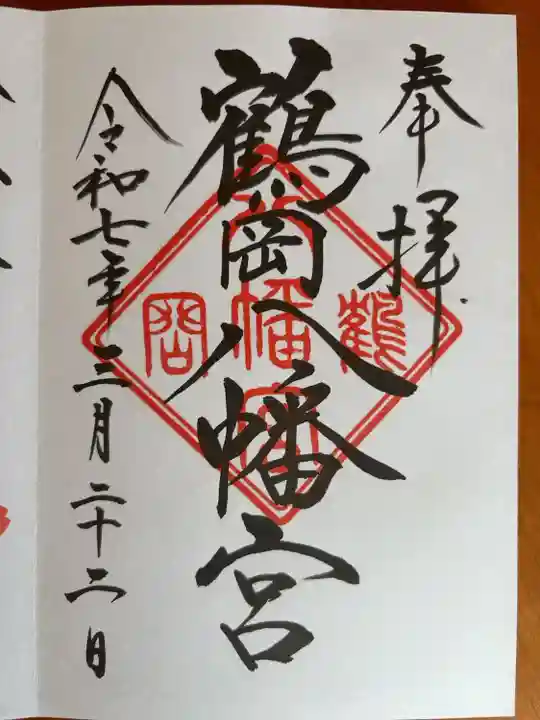 奉拝
鶴岡八幡宮
令和七年三月二十二日
鶴
八幡宮
岡